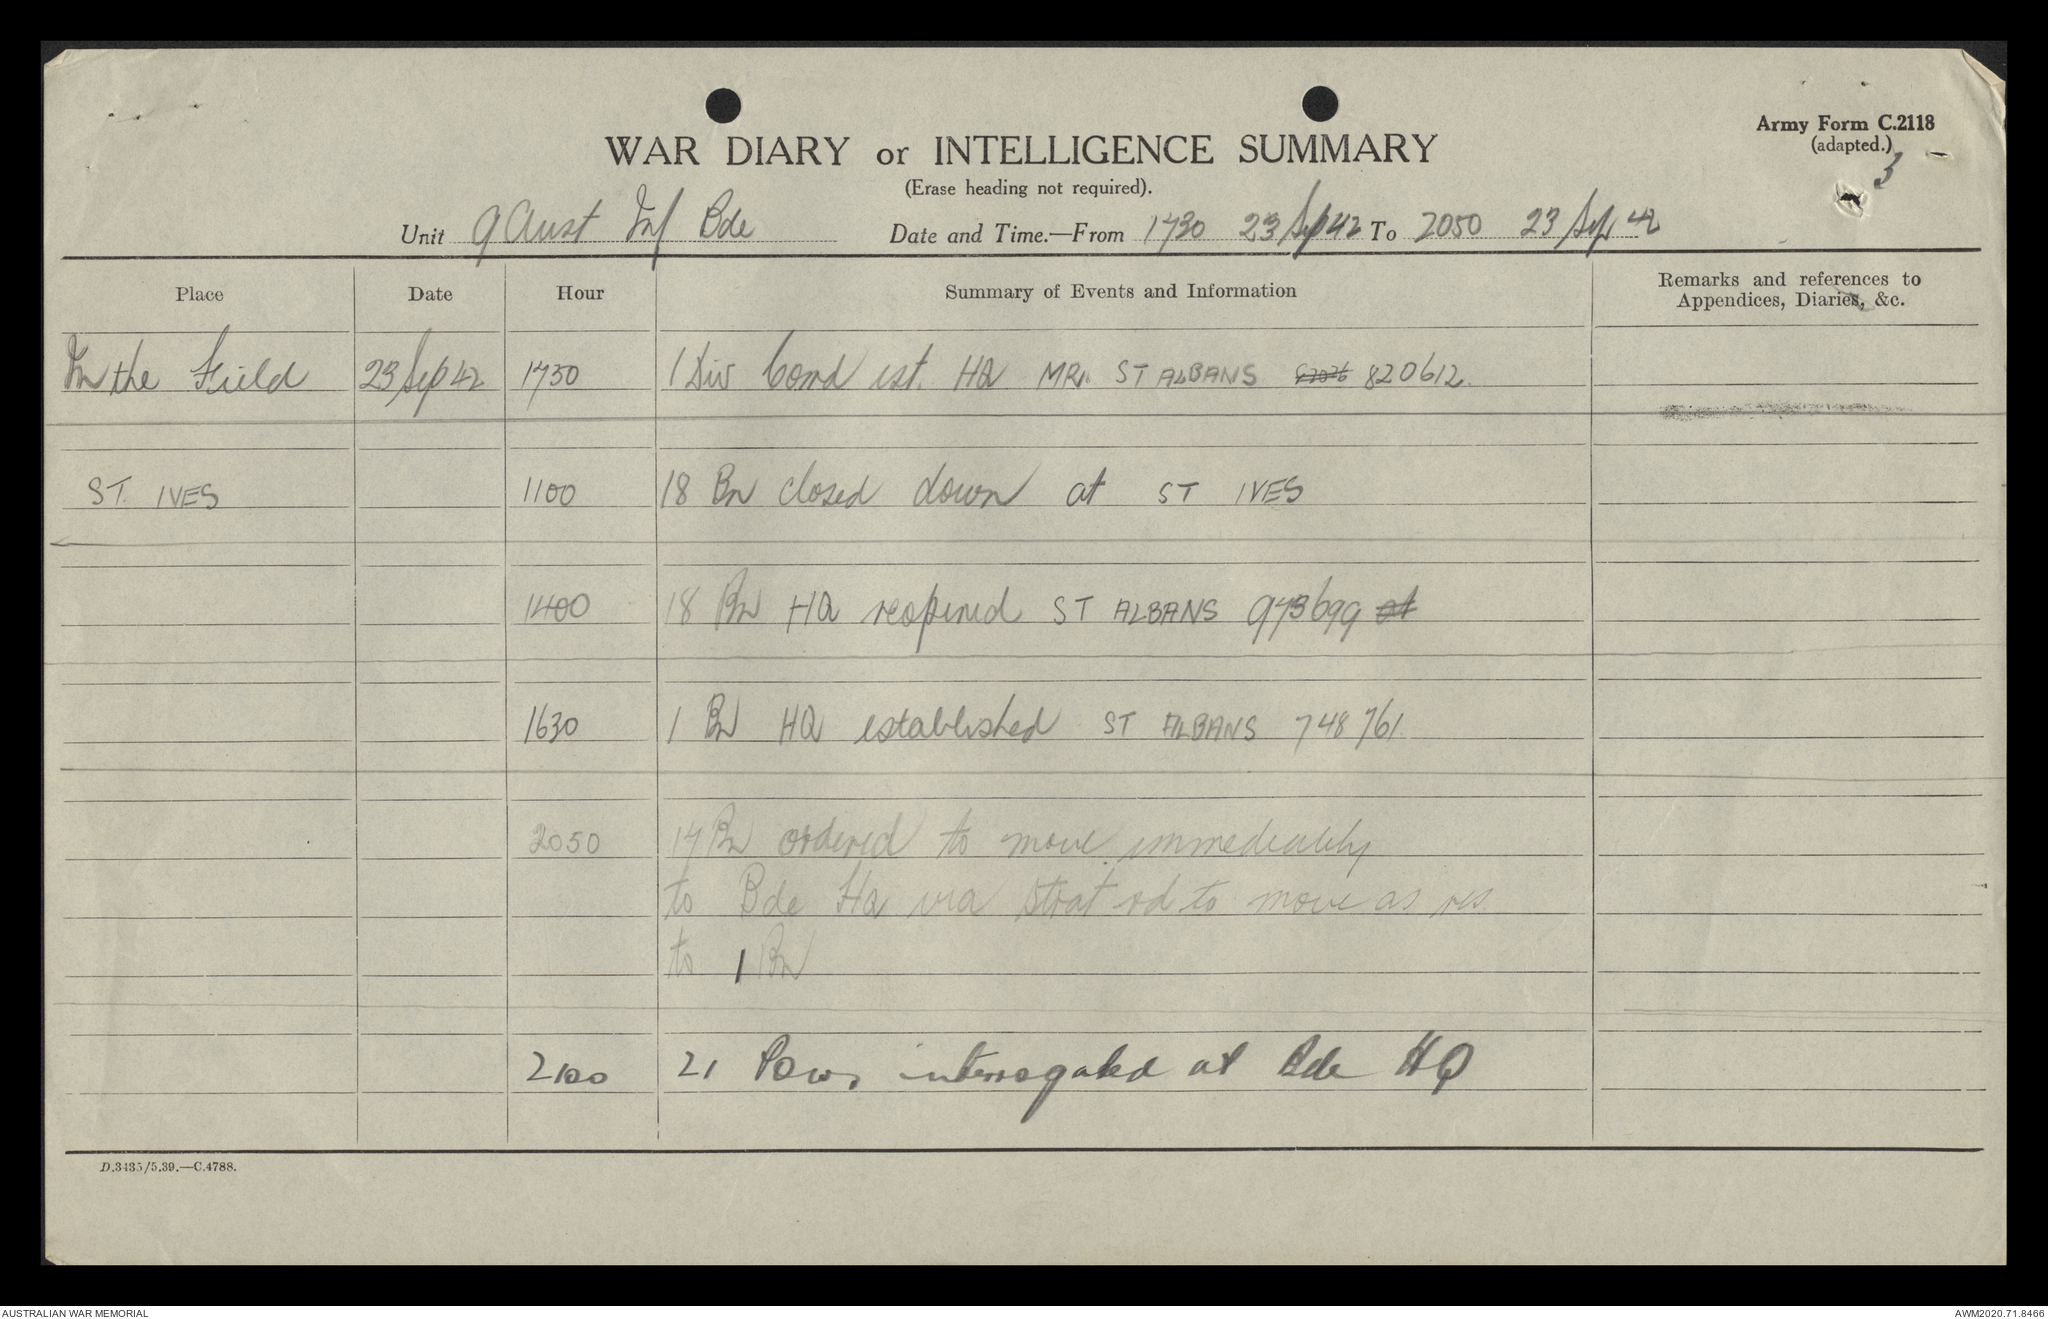 Army Form C.2118
(adapted.)
3
WAR DIARY or INTELLIGENCE SUMMARY
(Erase heading not required).
Unit 9 Aust Inf Bde Date and Time.—From 1730 23 Sep 42 To 2050 23 Sep 42
Place Date Hour Summary of Events and Information Remarks and references to Appendices, Diaries, &c.
In the Field 23 Sep 42 1730 1 Div Comd est. HQ MR. ST ALBANS 820612.
ST. IVES 1100 18 Bn closed down at ST IVES
1400 18 Bn HQ reopened ST ALBANS 973699 at
1630 1 Bn HQ established ST ALBANS 748761.
2050 17 Bn ordered to move immediately
to Bde HQ via Strat rd to move as res.
to 1 Bn
2100 21 Pows interrogated at Bde HQ
D.3435/5.39.—C.4788.
AUSTRALIAN WAR MEMORIAL AWM2020.71.8466